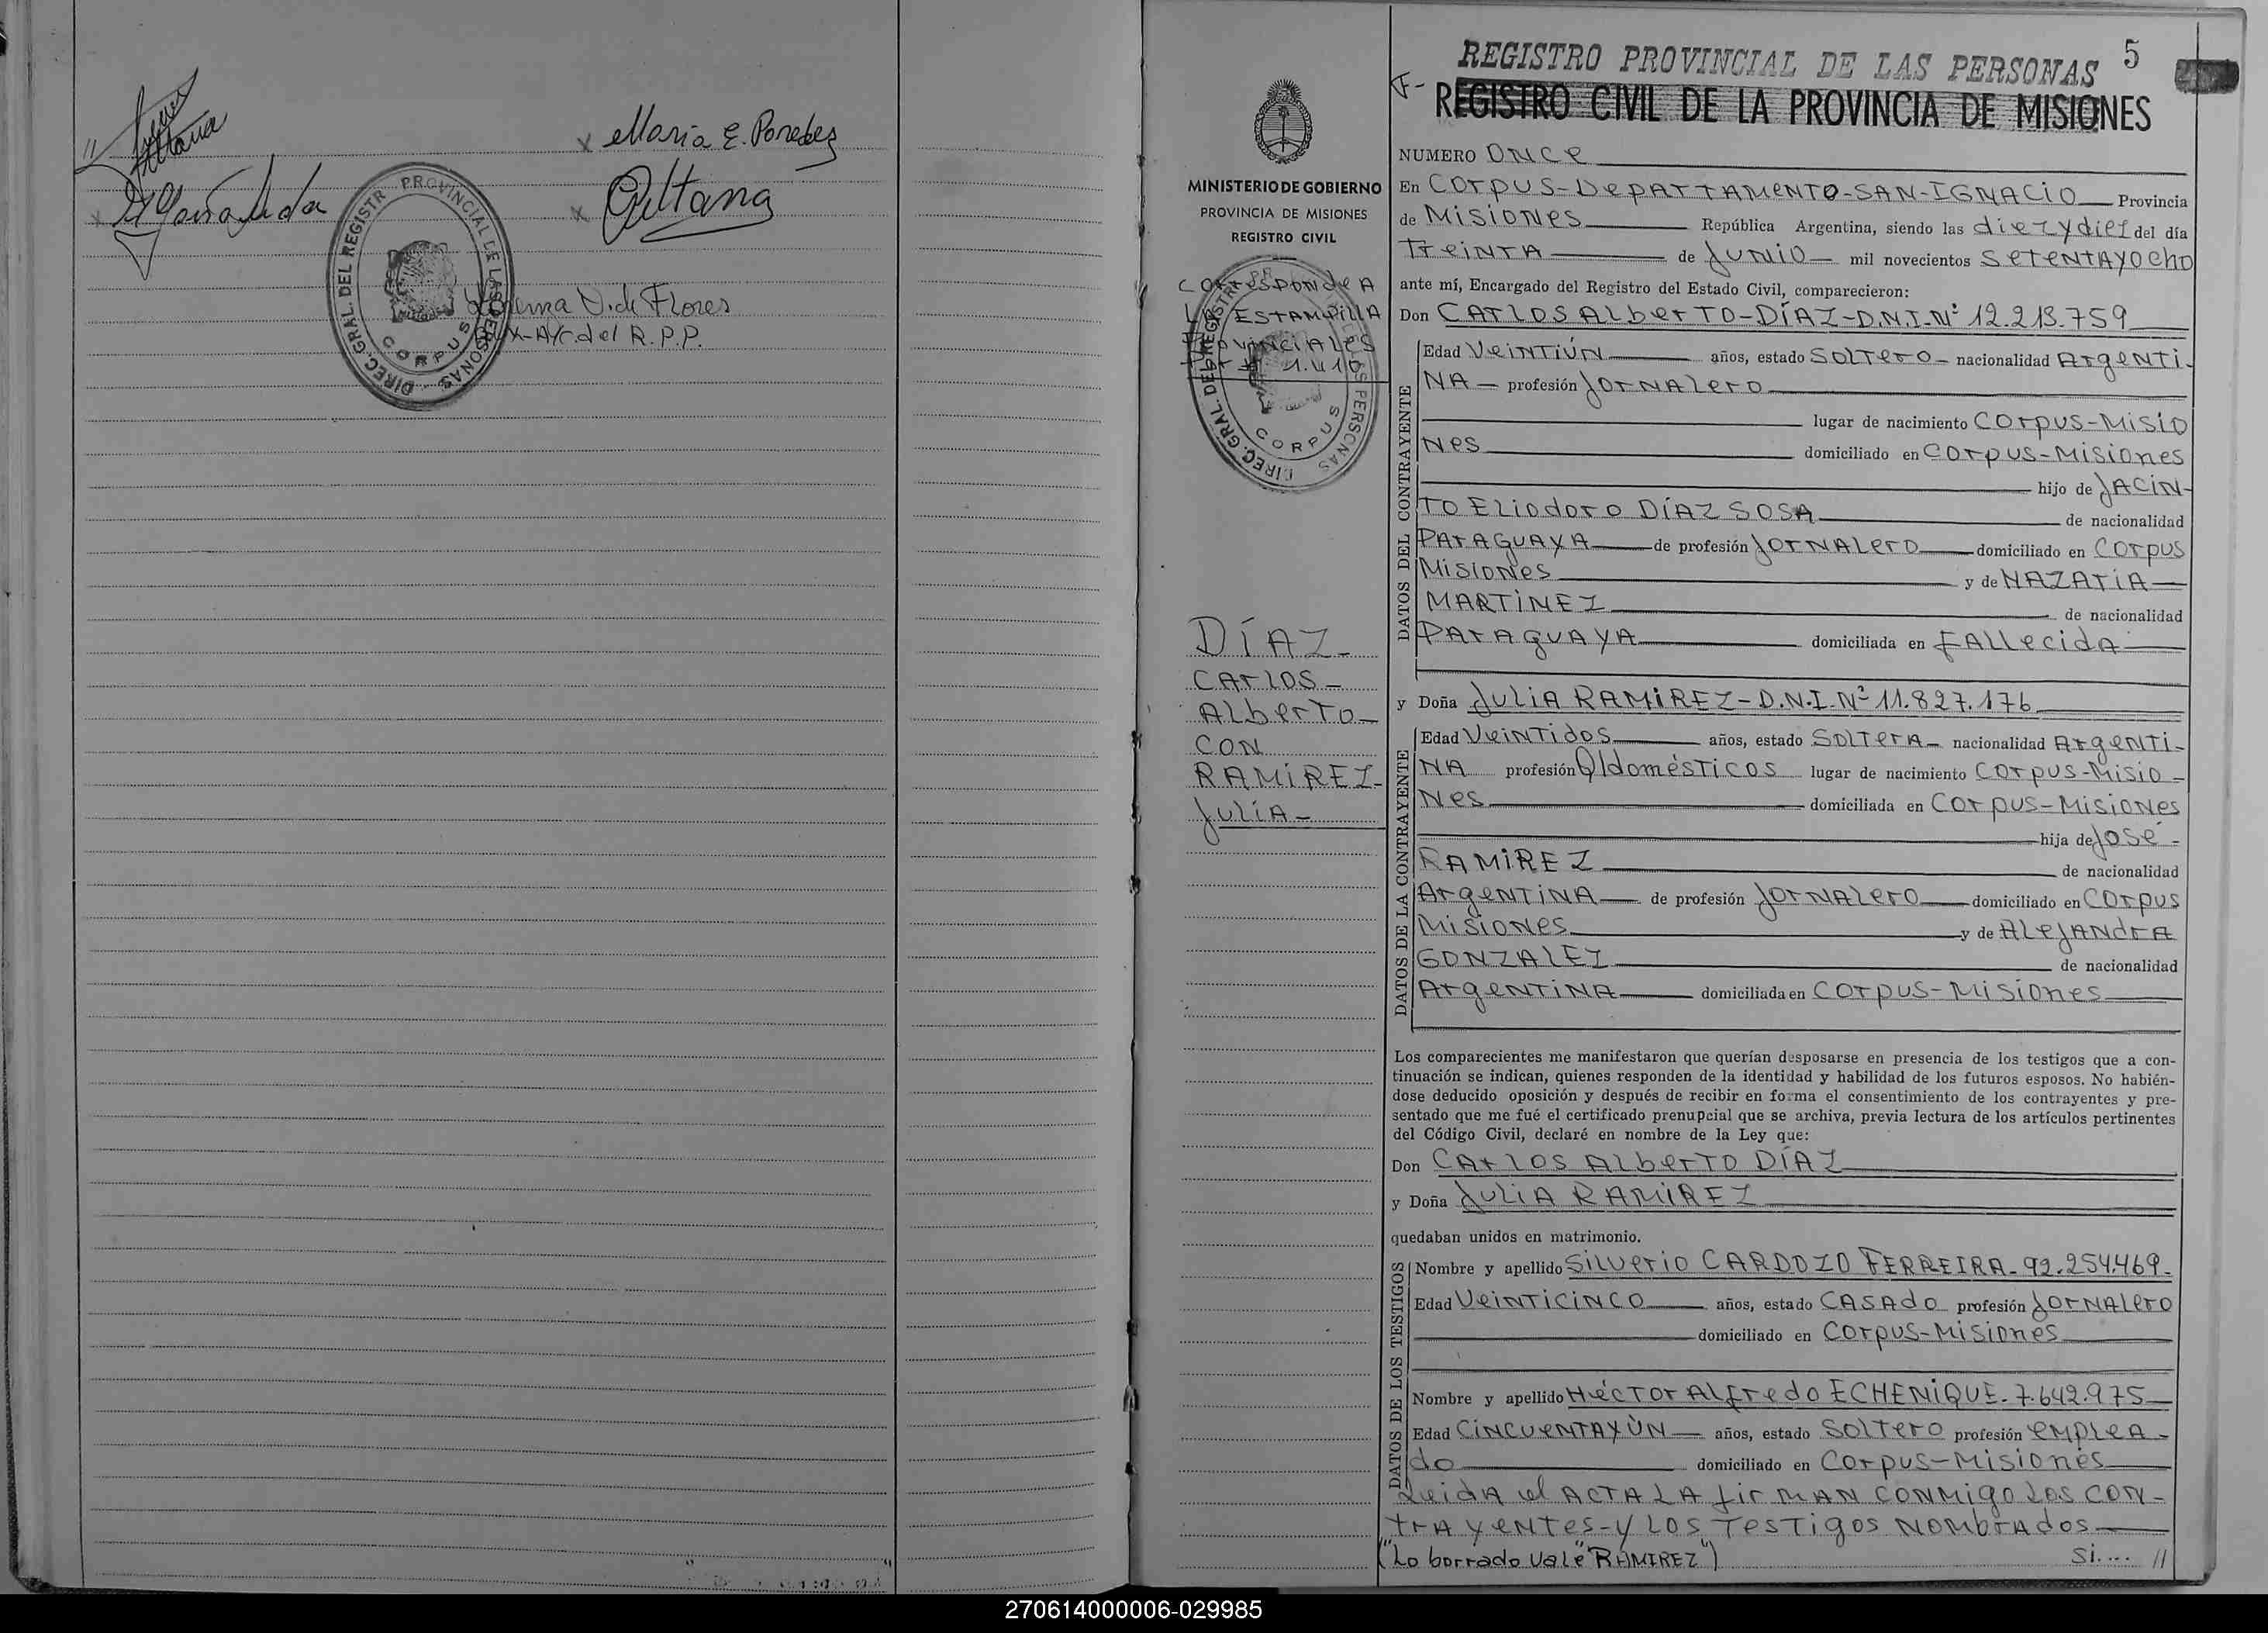 // 
x Maria E. Paredes
DIREC. GRAL. DEL REGISTR PROVINCIAL DE LAS PERSONAS
CORPUS
V. de Flores
del R. P. P.
5
REGISTRO PROVINCIAL DE LAS PERSONAS
REGISTRO CIVIL DE LA PROVINCIA DE MISIONES
MINISTERIO DE GOBIERNO
PROVINCIA DE MISIONES
REGISTRO CIVIL
Corresponde A
ESTAMPILLA
PROVINCIALES
CORPUS
DÍAZ-
CArlos-
Alberto-
CON
RAMIREZ-
Julia-
NUMERO ONce
En Corpus-DepArtAmento-SAN-IGNAcio Provincia
de Misiones República Argentina, siendo las diez y diez del día
treintA de Junio mil novecientos setentAyocho
ante mí, Encargado del Registro del Estado Civil, comparecieron:
Don CArlos Alberto-DÍAZ-D.N.I.Nº 12.213.759
DATOS DEL CONTRAYENTE
Edad Veintiún años, estado soltero- nacionalidad Argenti-
NA- profesión JornAlero
lugar de nacimiento Corpus-Misio
Nes domiciliado en Corpus-Misiones
hijo de JAcin-
to Eliodoro DÍAZ SOSA de nacionalidad
PArAguAyA de profesión JornAlero domiciliado en Corpus
Misiones y de NAZAriA
MARTINEZ de nacionalidad
PArAguAyA domiciliada en FAllecidA
y Doña Julia RAMIREZ-D.N.I.Nº 11.827.176
DATOS DE LA CONTRAYENTE
Edad Veintidos años, estado SolterA- nacionalidad Argenti-
NA profesión Q/domésticos lugar de nacimiento Corpus-Misio-
Nes domiciliada en Corpus-Misiones
hija de José-
RAMIREZ de nacionalidad
ArgentinA de profesión JornAlero domiciliado en Corpus
Misiones y de AlejAndrA
GONZALEZ de nacionalidad
ArgentinA domiciliada en Corpus-Misiones
Los comparecientes me manifestaron que querían desposarse en presencia de los testigos que a con-
tinuación se indican, quienes responden de la identidad y habilidad de los futuros esposos. No habién-
dose deducido oposición y después de recibir en forma el consentimiento de los contrayentes y pre-
sentado que me fué el certificado prenupcial que se archiva, previa lectura de los artículos pertinentes
del Código Civil, declaré en nombre de la Ley que:
Don CArlos Alberto DÍAZ
y Doña Julia RAMIREZ
quedaban unidos en matrimonio.
DATOS DE LOS TESTIGOS
Nombre y apellido Silverio CARDOZO FERREIRA-92.254.469-
Edad Veinticinco años, estado CAsAdo profesión JornAlero
domiciliado en Corpus-Misiones
Nombre y apellido Héctor Alfredo ECHENIQUE-7.642.975
Edad CincuentAyún años, estado Soltero profesión empleA-
do domiciliado en Corpus-Misiones
LeidA el ActA lA firmAn conmigo los con-
trAyentes-y los testigos nombrAdos
("Lo borrado vale "RAMIREZ") Si.... //
270614000006-029985